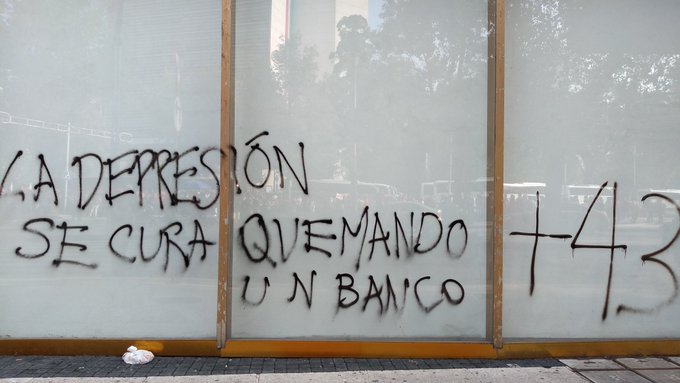 LA DEPRESIÓN
SE CURA QUEMANDO
UN BANCO
+43